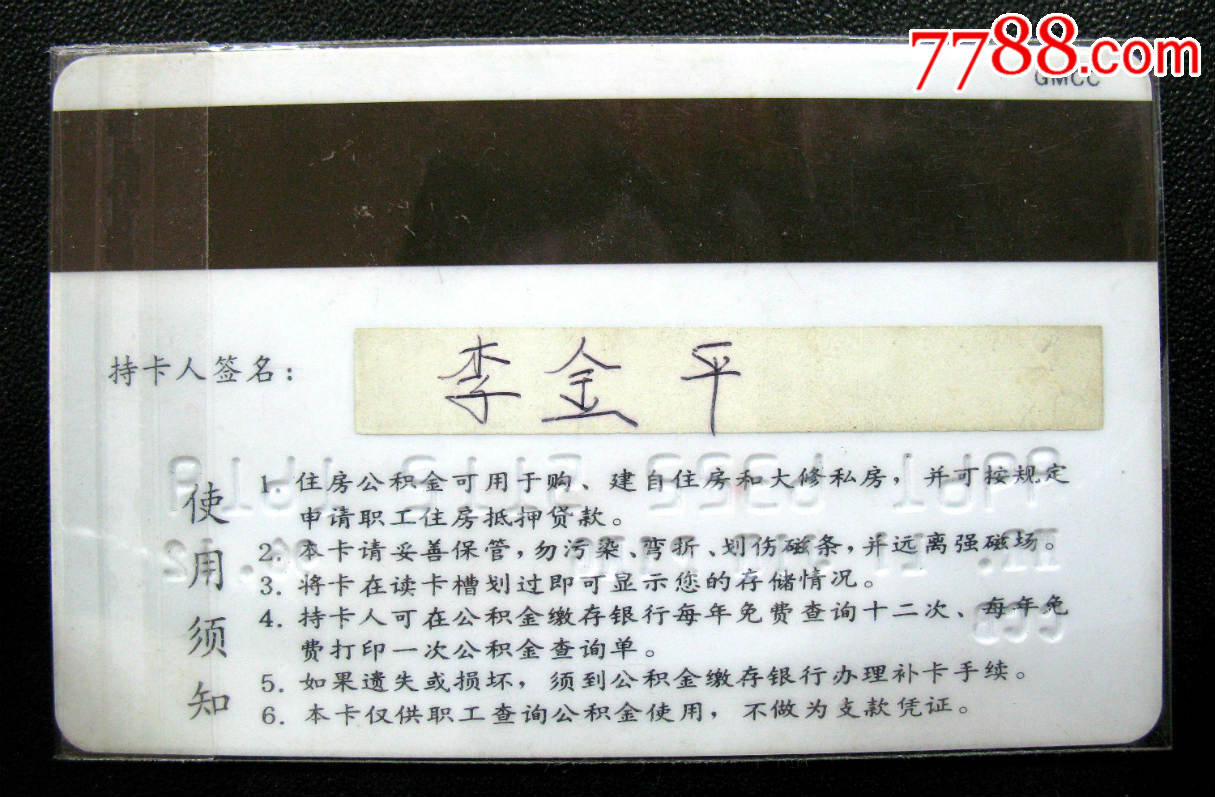 7788.com
GMCC
持卡人签名：
李金平
使用须知
1. 住房公积金可用于购、建自住房和大修私房，并可按规定
申请职工住房抵押贷款。
2. 本卡请妥善保管，勿污染、弯折、划伤磁条，并远离强磁场。
3. 将卡在读卡槽划过即可显示您的存储情况。
4. 持卡人可在公积金缴存银行每年免费查询十二次、每年免
费打印一次公积金查询单。
5. 如果遗失或损坏，须到公积金缴存银行办理补卡手续。
6. 本卡仅供职工查询公积金使用，不做为支款凭证。